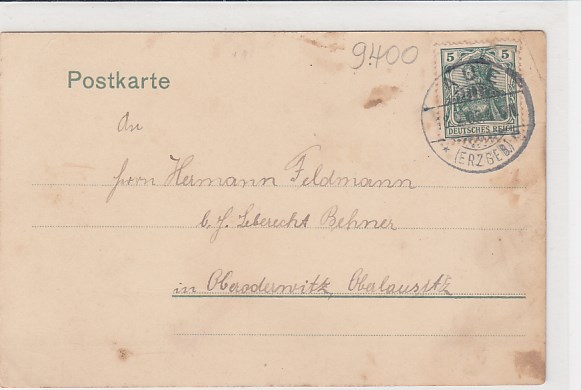 9400
5 5
Postkarte
AUE
DEUTSCHES REICH
* (ERZGEB.)
An
Herrn Hermann Feldmann
b. H. Leberecht Behner
in Oberoderwitz, Oberlausitz